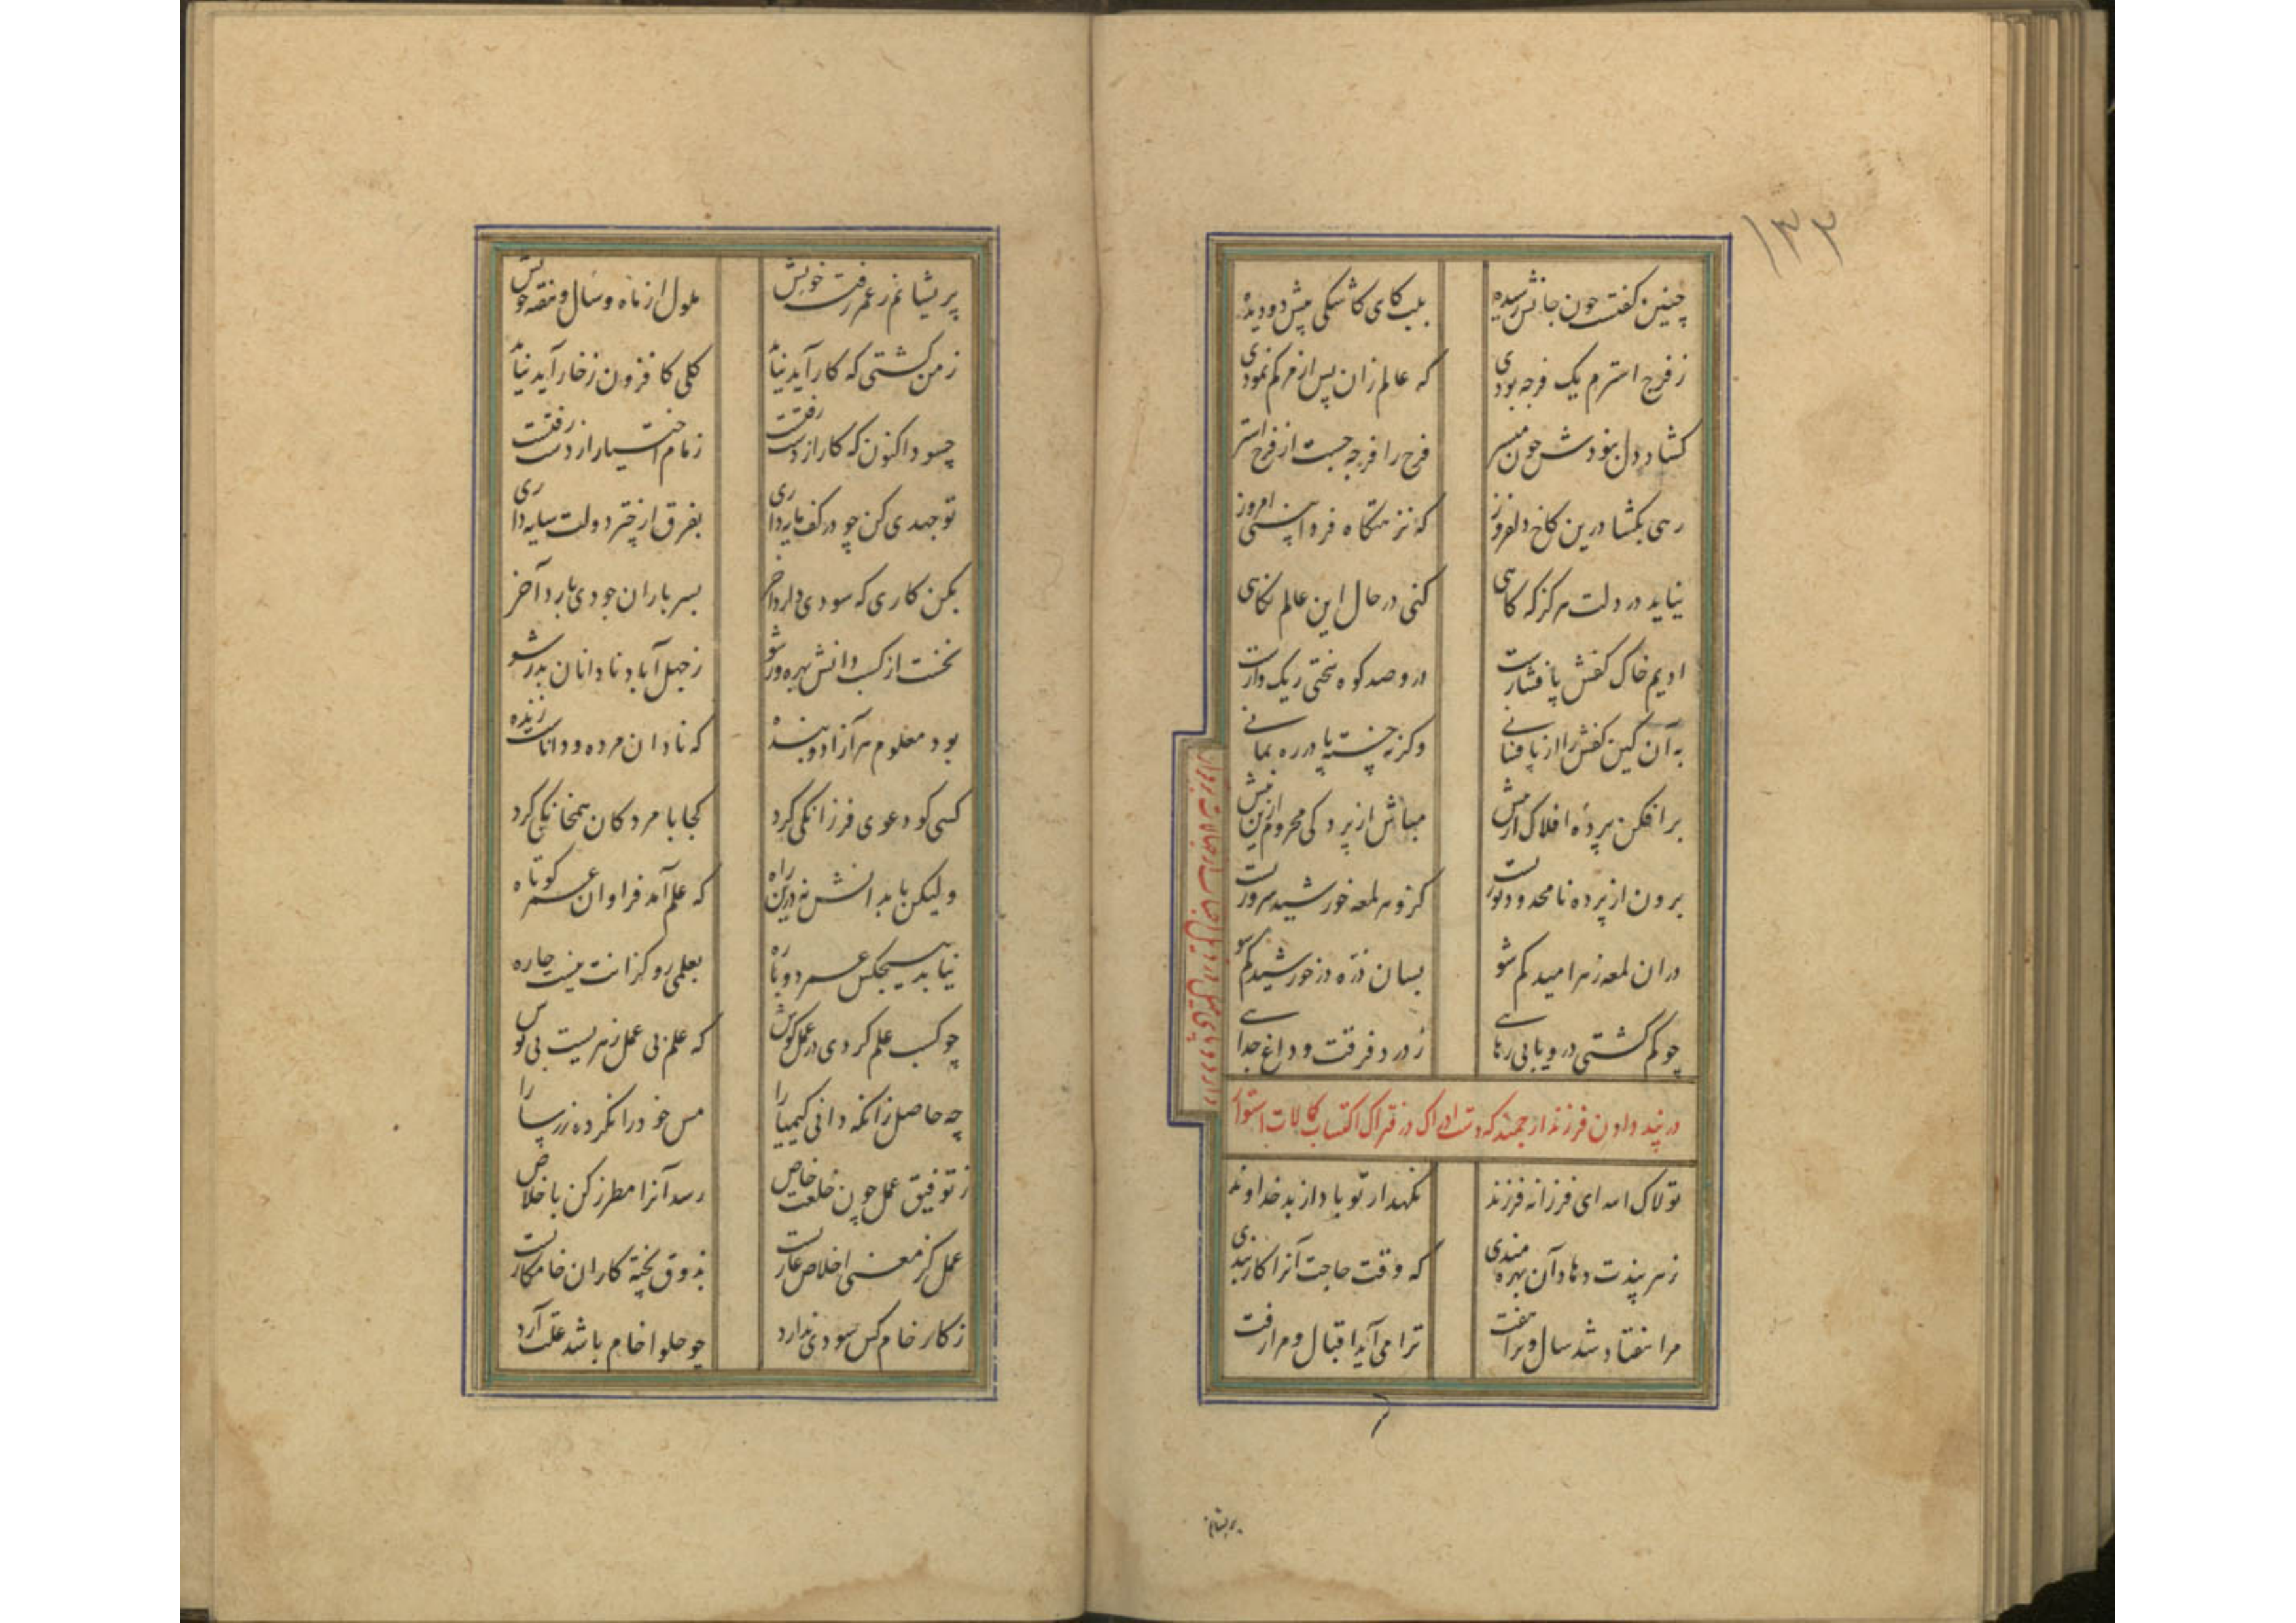 ۱۳۳
چنین گفت چون جانش رسیده
بلب کای کاشکی پیش دو دیده
ز فرج استرم یک فرجه بودی
که عالم زان پس از مرگم نمودی
کشاد دل نبودش چون میسر
فرح را فرجه جست از فرج استر
رهی بکشا درین کاخ دلفروز
که نزهتگاه فردا بینی امروز
نیاید در دلت هرگز که گاهی
کنی در حال این عالم نگاهی
ادیم خاک کفش پا فشارت
درو صد کوه سختی ریک وارت
به آن کین کفش را از پا فشانی
وگرنه خسته پا در ره بمانی
برافکن پرده افلاک از پیش
مباش از پردگی محروم ازین بیش
برون از پرده نامحدود نوریست
کزو هر لمعه خورشید سروریست
دران لمعه ز هر امید کم شو
بسان ذره در خورشید کم شو
چو کم کشتی درو یابی رهایی
ز درد فرقت و داغ جدایی
در پند دادن فرزند ارجمند که دست ادراک در فتراک اکتساب کمالات استوار
تولاک الله ای فرزانه فرزند
نکهدار تو باد از بد خداوند
ز هر پندت دهاد آن بهره مندی
که وقت حاجت آنرا کار بندی
مرا هفتاد شد سال و ترا هفت
ترا می آید اقبال و مرا رفت
پریشانم
پریشانم ز عمر رفت خویش
ملول از ماه و سال و هفته خویش
ز من کشتی که کار آید نیاید
کلی کافزون ز خار آید نیاید
چسود اکنون که کار از دست رفتست
زمام اختیار از دست رفتست
تو جهدی کن چو در کف مایه داری
بفرق از چتر دولت سایه داری
بکن کاری که سودی دارد آخر
بسر باران جودی بارد آخر
نخست از کسب دانش بهره ور شو
ز جهل آباد نادانان بدر شو
بود معلوم هر آزاد و بنده
که نادان مرده و داناست زنده
کسی کو دعوی فرزانکی کرد
کجا با مردکان همخانکی کرد
ولیکن پا بدانش نه درین راه
که علم آمد فراوان عمر کوتاه
نیابد هیچکس عمر دوباره
بعلمی رو کز انت نیست چاره
چو کسب علم کردی در عمل کوش
که علم بی عمل زهریست بی نوش
چه حاصل زانکه دانی کیمیا را
مس خود را نکرده زر سارا
ز توفیق عمل چون خلعت خاص
رسد آنرا مطرز کن باخلاص
عمل کز معنی اخلاص عاریست
بذوق پخته کاران خامکاریست
ز کار خام کس سودی ندارد
چو حلوا خام باشد علت آرد